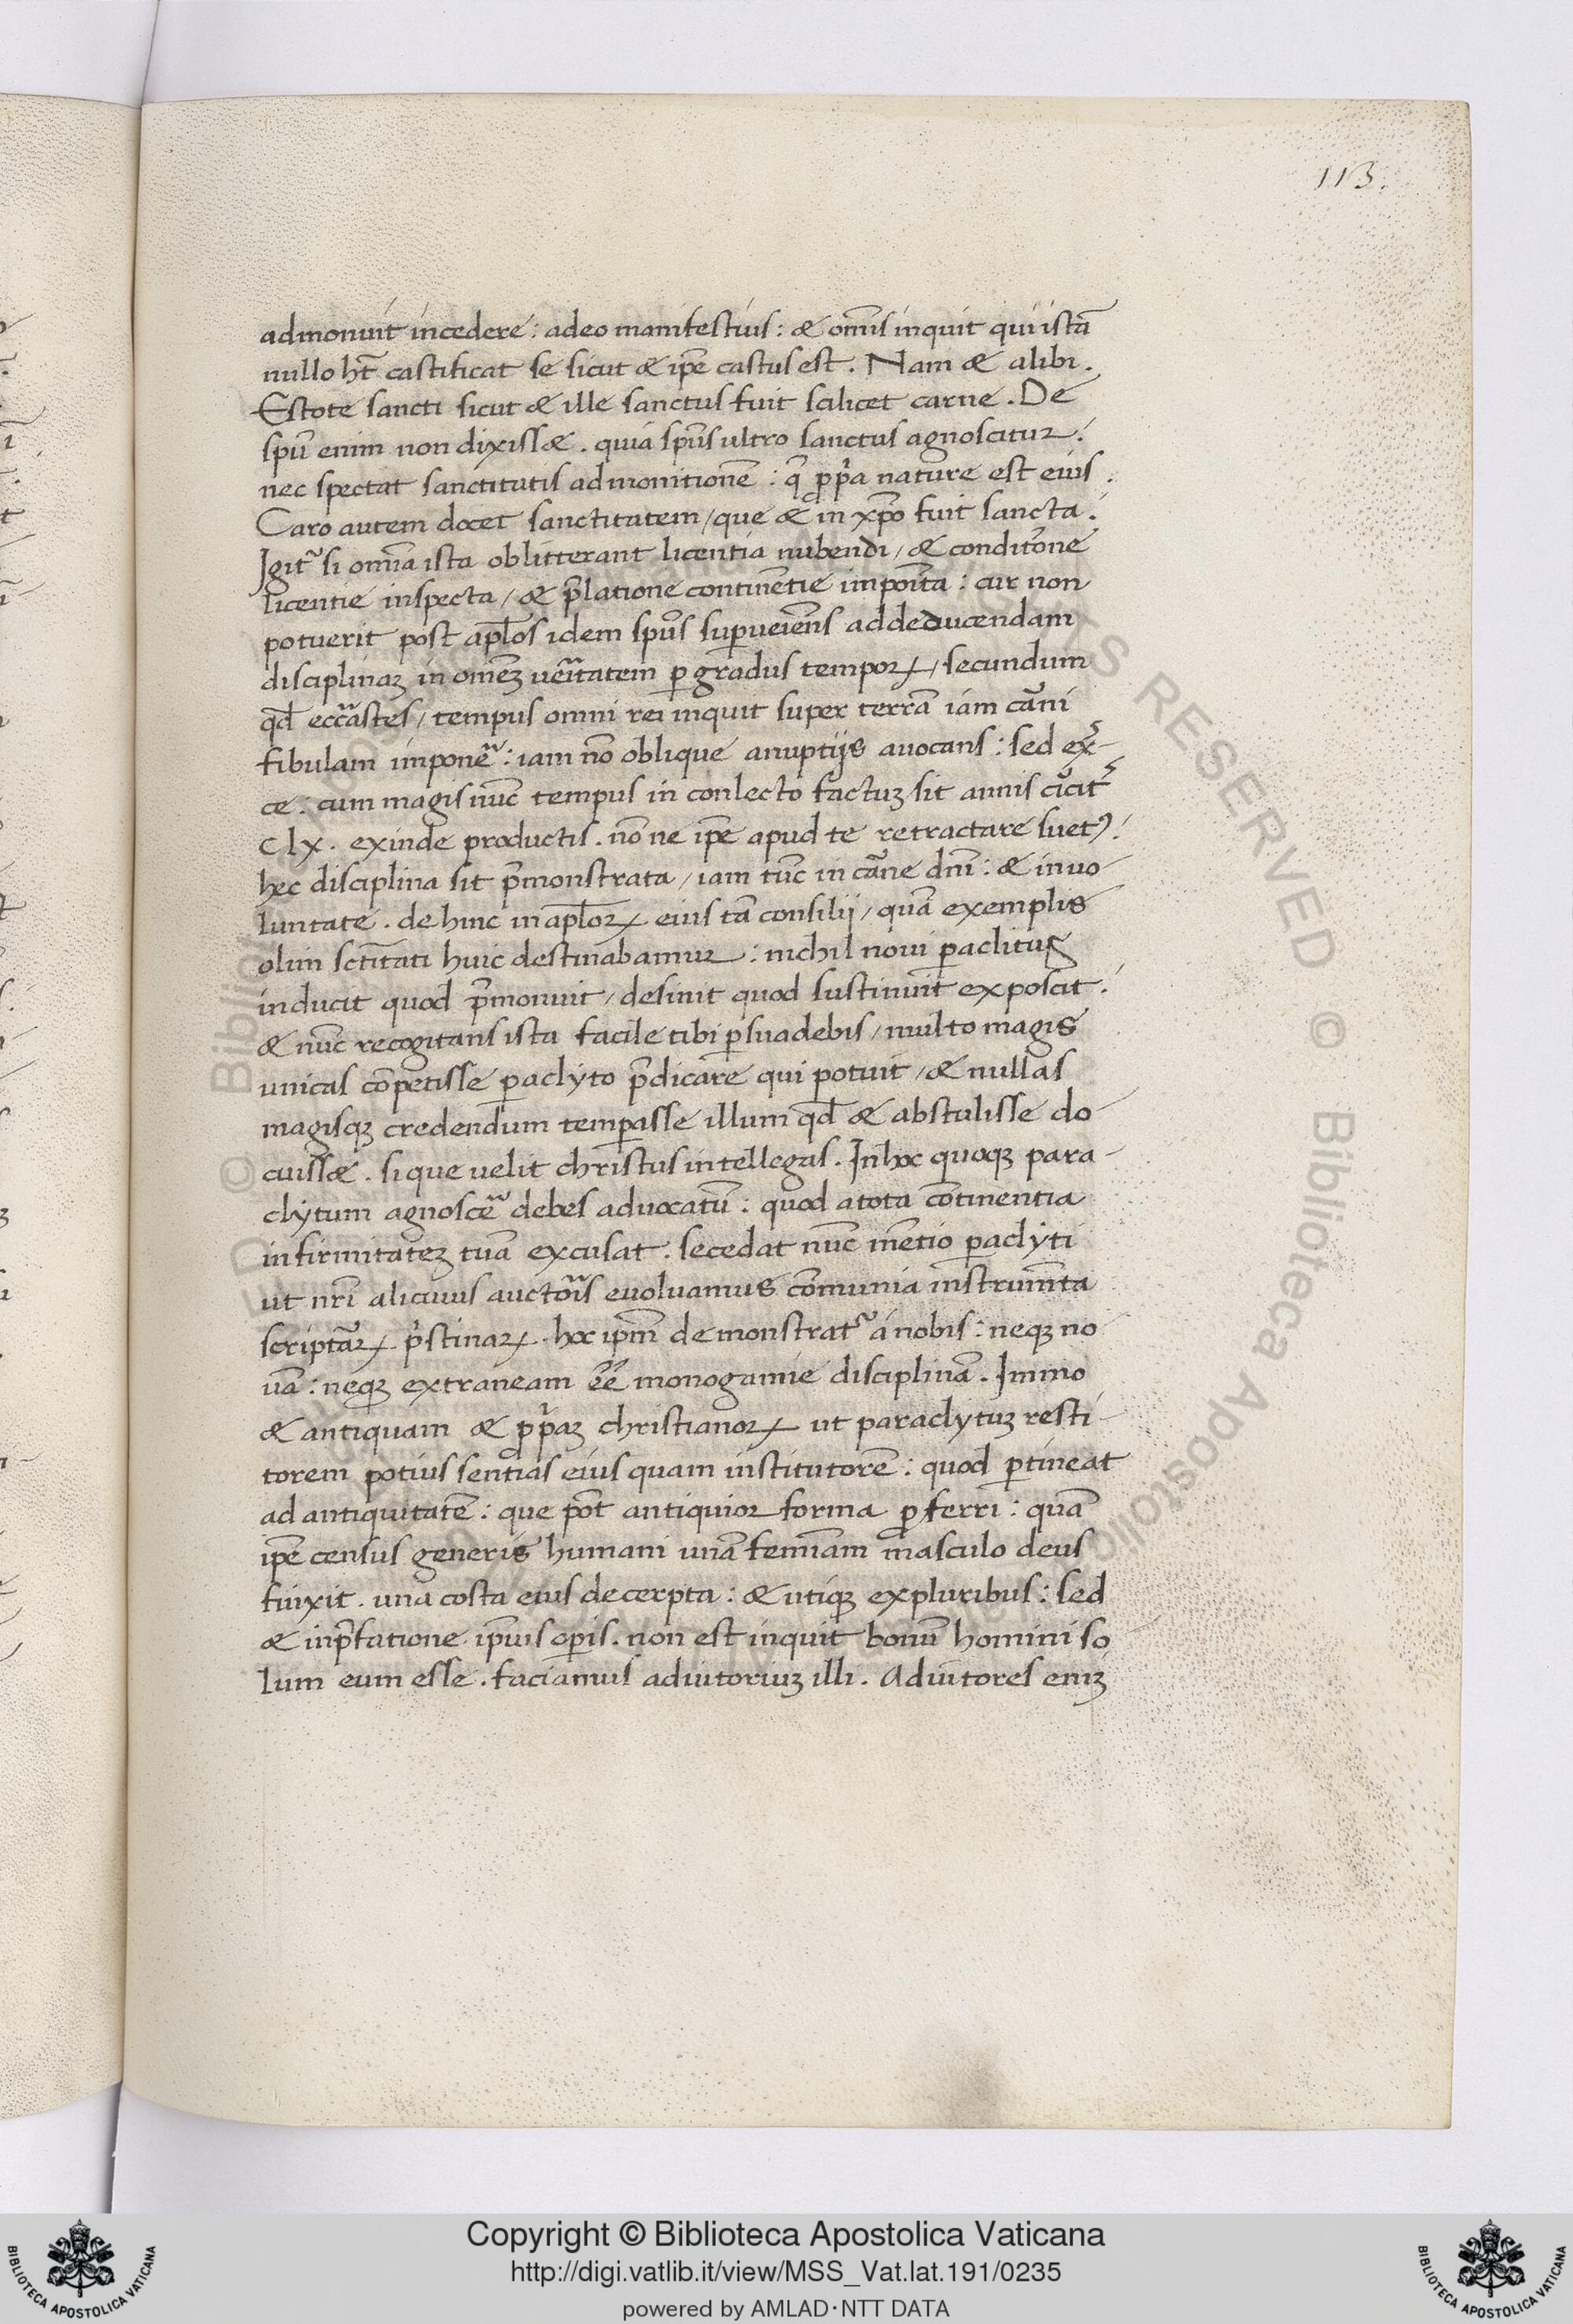 113.
admonuit incedere: adeo manifestius: & om̄is inquit qui istā
nullo hr̄t castificat se sicut & ip̄e castus est. Nam & alibi.
Estote sancti sicut & ille sanctus fuit scilicet carne. De
spū enim non dixiss&. quia sp̄us ultro sanctus agnoscitur.
nec spectat sanctitatis admonitionē: q̄ ꝓpͥa nature est eius.
Caro autem docet sanctitatem/que & in xp̄o fuit sancta.
Igit᷑ si om̄ia ista oblitterant licentia nubendi/& conditōne
licentie inspecta/& p̄latione continētie imposīta: cur non
potuerit post apl̄os idem sp̄us suꝑueiēns addeducendam
disciplinaꝫ in omēꝫ ueritatem ꝑ gradus tempoꝝ/secundum
qd̄ ecc̄astes/tempus omni rei inquit super terrā iam carni
fibulam imponē: iam nō oblique anuptijs auocans: sed ex-
ce: cum magis nūc tempus in conlecto factuꝫ sit annis circit᷑
clx. exinde productis. nōne ip̄e apud te retractare suetꝰ.
hec disciplina sit p̄monstrata/iam tūc in carne dn̄i: & in uo-
luntate. dehinc in apl̄oꝝ eius tā consilii/quā exemplis
olim sctītati huic destinabamur: nichil noui ꝑaclitus
inducit quod p̄monuit/desinit quod sustinuit exposcit.
& nūc recogitans ista facile tibi ꝑsuadebis/multo magis
unicas cōpetisse ꝑaclyto p̄dicare qui potuit/& nullas
magisqꝫ credendum temꝑasse illum qd̄ & abstulisse do-
cuiss&. si que uelit christus intellegas. In hoc quoqꝫ para-
clytum agnoscē debes aduocatū: quod atota cōtinentia
infirmitateꝫ tuā excusat. secedat nūc mētio ꝑaclyti
ut nr̄i alicuius auctōis euoluamus cōmunia instrumēta
scriptaꝝ pͥstinaꝝ. hoc ip̄m demonstrat᷑ a nobis: neqꝫ no
uā: neqꝫ extraneam ēē monogamie disciplinā. Immo
& antiquam & ꝓpͥaꝫ christianoꝝ ut paraclytuꝫ resti-
torem potius sentias eius quam institutorē: quod ꝑtineat
ad antiquitatē: que pōt antiquior forma ꝓferri: quā
ip̄e census generis humani unā femīam masculo deus
finxit. una costa eius decerpta: & utiqꝫ expluribus: sed
& inp̄fatione ip̄ius oꝑis. non est inquit bonū homini so
lum eum esse. faciamus adiutoriuꝫ illi. Adiutores eniꝫ
Copyright © Biblioteca Apostolica Vaticana
http://digi.vatlib.it/view/MSS_Vat.lat.191/0235
powered by AMLAD·NTT DATA